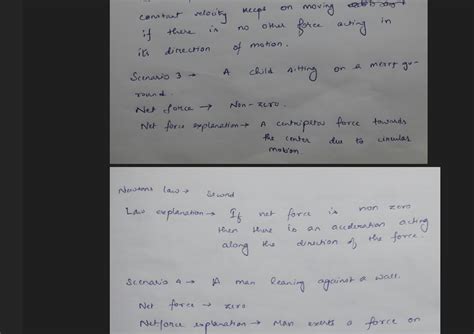 constant velocity keeps on moving
if there is no other force acting in
its direction of motion.
Scenario 3 → A child sitting on a merry go-
round.
Net force → Non-zero.
Net force explanation → A centripetal force towards
the center due to circular
motion.
Newtons law → Second
Law explanation → If net force is non zero
then there is an acceleration acting
along the direction of the force.
Scenario 4 → A man leaning against a wall.
Net force → zero
Net force explanation → Man exerts a force on